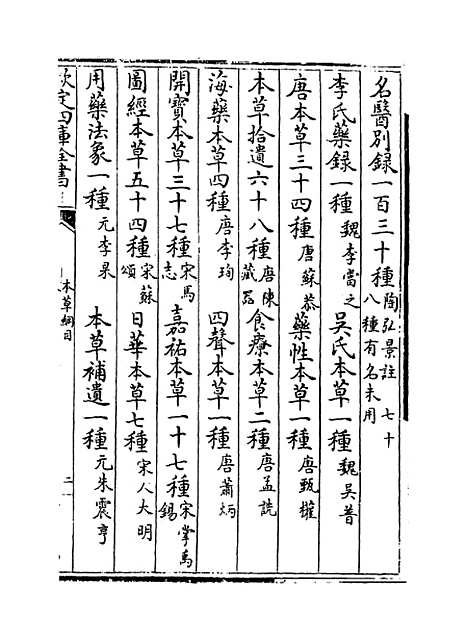 名醫别録一百三十種陶弘景註七十八種有名未用
李氏藥録一種魏李當之 吳氏本草一種魏吳普
唐本草三十四種唐蘇恭 藥性本草一種唐甄權
本草拾遺六十八種唐陳藏器 食療本草二種唐孟詵
海藥本草四種唐李珣 四聲本草一種唐蕭炳
開寶本草三十七種宋馬志 嘉祐本草一十七種宋掌禹錫
圖經本草五十四種宋蘇頌 日華本草七種宋人大明
用藥法象一種元李杲 本草補遺一種元朱震亨
欽定四庫全書
本草綱目
二